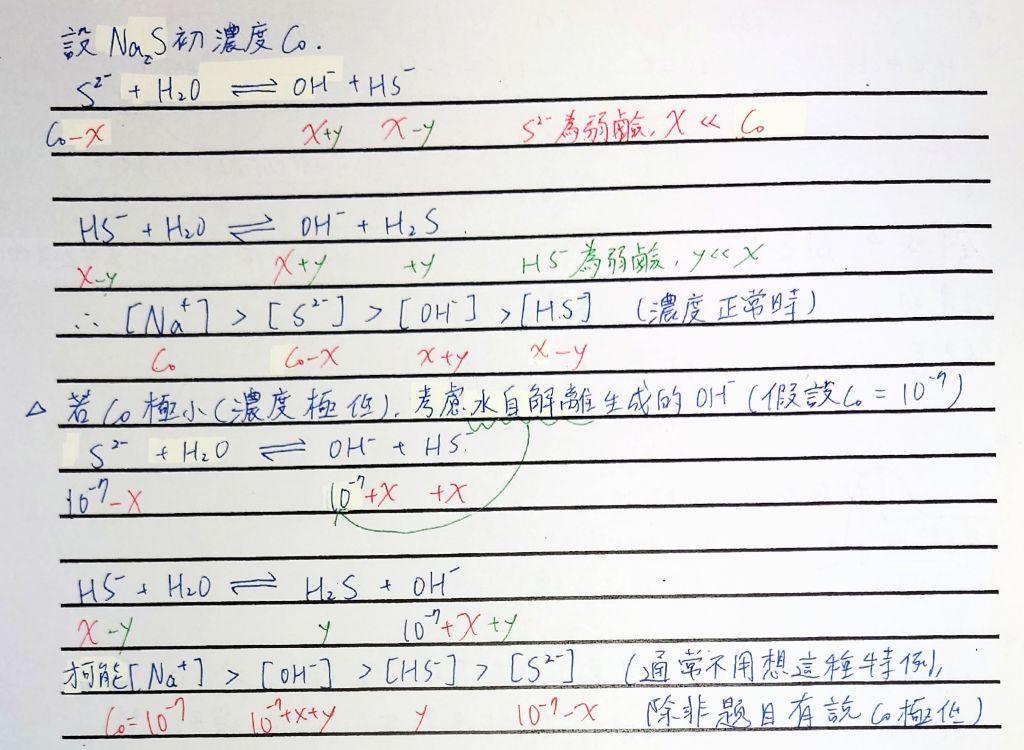 設 Na₂S 初濃度 C₀.
S²⁻ + H₂O ⇌ OH⁻ + HS⁻
C₀-x x+y x-y S²⁻為弱鹼, x << C₀
HS⁻ + H₂O ⇌ OH⁻ + H₂S
x-y x+y +y HS⁻為弱鹼, y << x
∴ [Na⁺] > [S²⁻] > [OH⁻] > [HS⁻] (濃度正常時)
C₀ C₀-x x+y x-y
△ 若 C₀ 極小(濃度極低), 考慮水自解離生成的 OH⁻ (假設 C₀ = 10⁻⁷)
S²⁻ + H₂O ⇌ OH⁻ + HS⁻
10⁻⁷-x 10⁻⁷+x +x
HS⁻ + H₂O ⇌ H₂S + OH⁻
x-y y 10⁻⁷+x+y
才可能[Na⁺] > [OH⁻] > [HS⁻] > [S²⁻] (通常不用想這種特例,
C₀=10⁻⁷ 10⁻⁷+x+y y 10⁻⁷-x 除非題目有說 C₀ 極低)